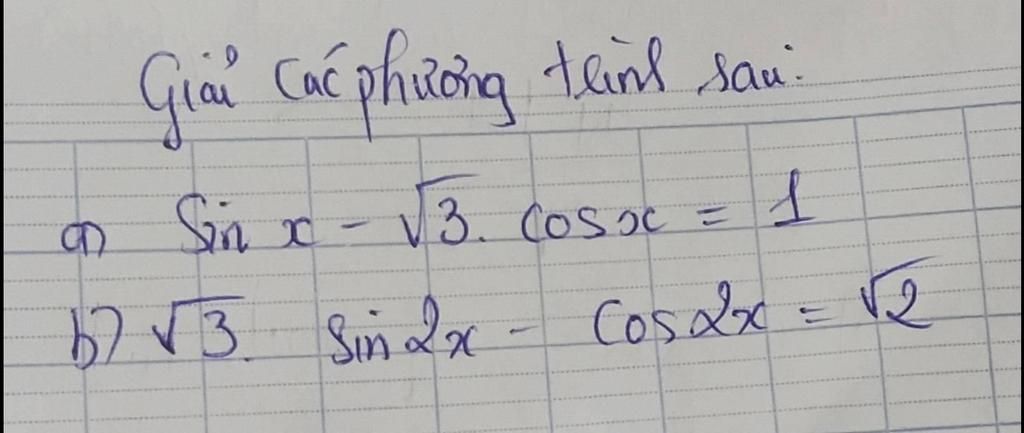 Giải các phương trình sau:
a) Sin x - √3. cos x = 1
b) √3. sin 2x - cos 2x = √2